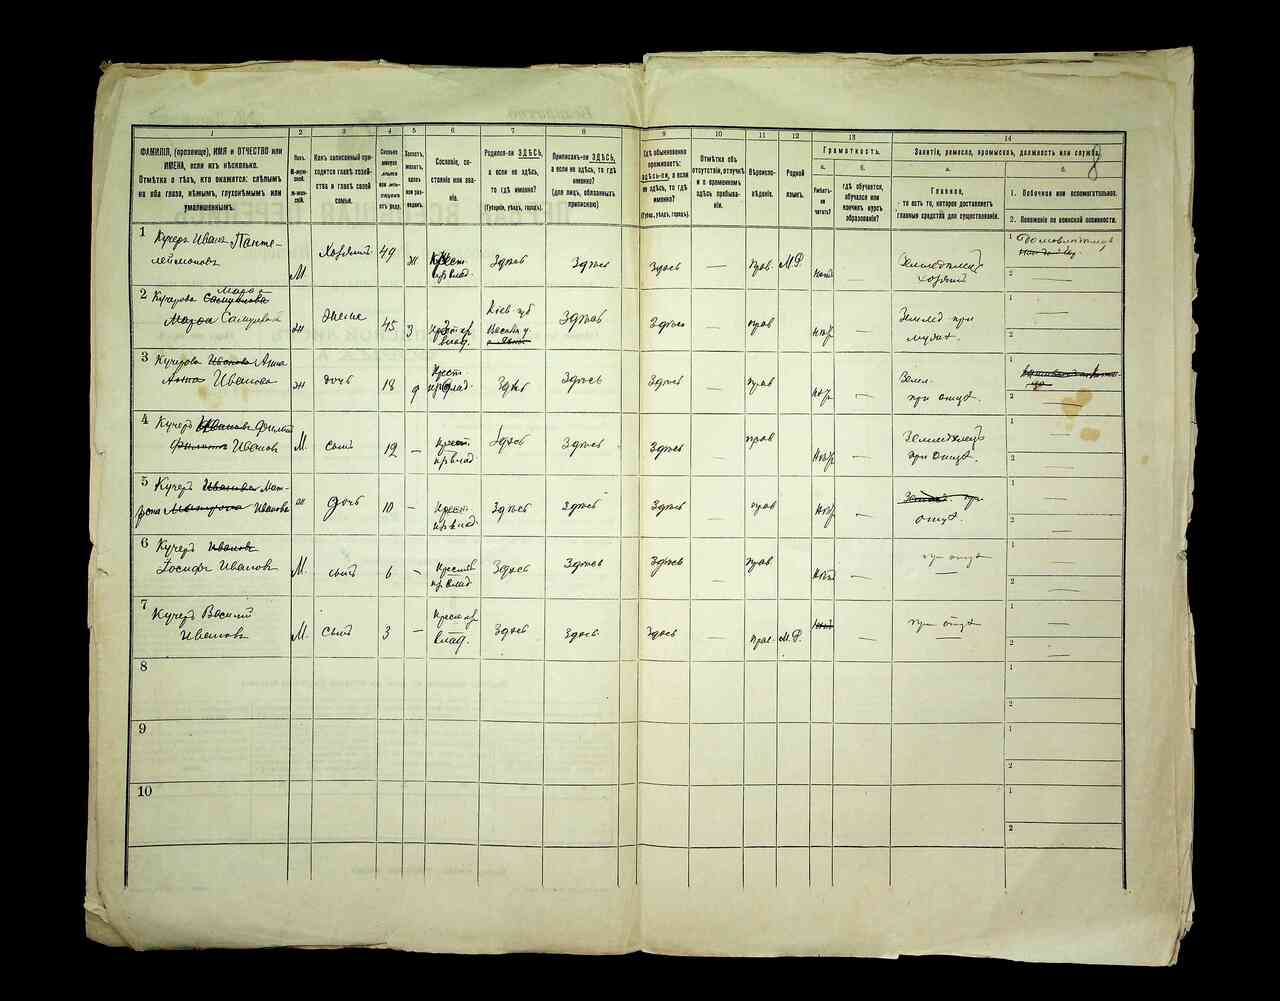 1
2
3
4
5
6
7
8
9
10
11
12
13
14
ФАМИЛІЯ, (прозвище), ИМЯ и ОТЧЕСТВО или
ИМЕНА, если ихъ нѣсколько.
Отмѣтка о тѣхъ, кто окажется: слѣпымъ
на оба глаза, нѣмымъ, глухонѣмымъ или
умалишеннымъ.
Полъ.
М-муж-
ской.
ж-жен-
скій.
Какъ записанный при-
ходится главѣ хозяй-
ства и главѣ своей
семьи.
Сколько
минуло
лѣтъ
отъ роду.
Холостъ,
женатъ,
вдовъ
или раз-
веденъ.
Сословіе, со-
стояніе или зва-
ніе.
Родился-ли ЗДѢСЬ,
а если не здѣсь,
то гдѣ именно?
(Губернія, уѣздъ, городъ).
Приписанъ-ли ЗДѢСЬ,
а если не здѣсь, то гдѣ
именно?
(для лицъ, обязанныхъ
припискою)
Гдѣ обыкновенно
проживаетъ:
здѣсь-ли, а если
не здѣсь, то гдѣ
именно?
(Губер., уѣздъ, городъ).
Отмѣтка объ
отсутствіи, отлучкѣ
и о временномъ
здѣсь пребыва-
ніи.
Вѣроиспо-
вѣданіе.
Родной
языкъ.
Грамотность.
а.
б.
Умѣетъ-
ли
читать?
гдѣ обучается,
обучался или
кончилъ курсъ
образованія?
Занятіе, ремесло, промыселъ, должность или служба.
а.
б.
Главное,
то есть то, которое доставляетъ
главныя средства для существованія.
1. Побочное или вспомогательное.
2. Положеніе по воинской повинности.
8
1
Кучеръ Иванъ Панте-
леймоновъ
М
Хозяинъ
49
ж
Крест
пр влад.
Здѣсь
Здѣсь
Здѣсь
—
прав.
М.Р.
Земледѣлецъ
хозяинъ
1
2
—
2
Кучерова Самуилова
Самуилова
ж
жена
45
З
влад.
Кіев. губ
Здѣсь
Здѣсь
—
прав
Землед при
мужѣ.
1 —
2 —
3
Кучерова Иванова Анна
Анна Иванова
ж
дочь
18
Крест
Здѣсь
Здѣсь
Здѣсь
—
прав
—
Землед.
при отцѣ.
1
2 —
4
Кучеръ
Ивановъ
М.
сынъ
12
—
Крест.
пр влад.
Здѣсь
Здѣсь
Здѣсь
—
прав
—
Земледѣлецъ
при отцѣ.
1 —
2 —
5
Кучеръ Иванова Мат-
рона Матрона Иванова
ж
дочь
10
—
Крест
пр влад.
Здѣсь
Здѣсь
Здѣсь
—
прав
—
при
отцѣ.
1 —
2 —
6
Кучеръ Ивановъ
Іосифъ Ивановъ
М.
сынъ
6
—
Крестьян
пр влад.
Здѣсь
Здѣсь
Здѣсь
—
прав
—
при отцѣ
—
1 —
2 —
7
Кучеръ Василій
Ивановъ
М.
Сынъ
3
—
Крест пр
влад.
Здѣсь
Здѣсь
Здѣсь
—
прав.
М.Р.
—
при отцѣ
—
1 —
2 —
8
1
2
9
1
2
10
1
2